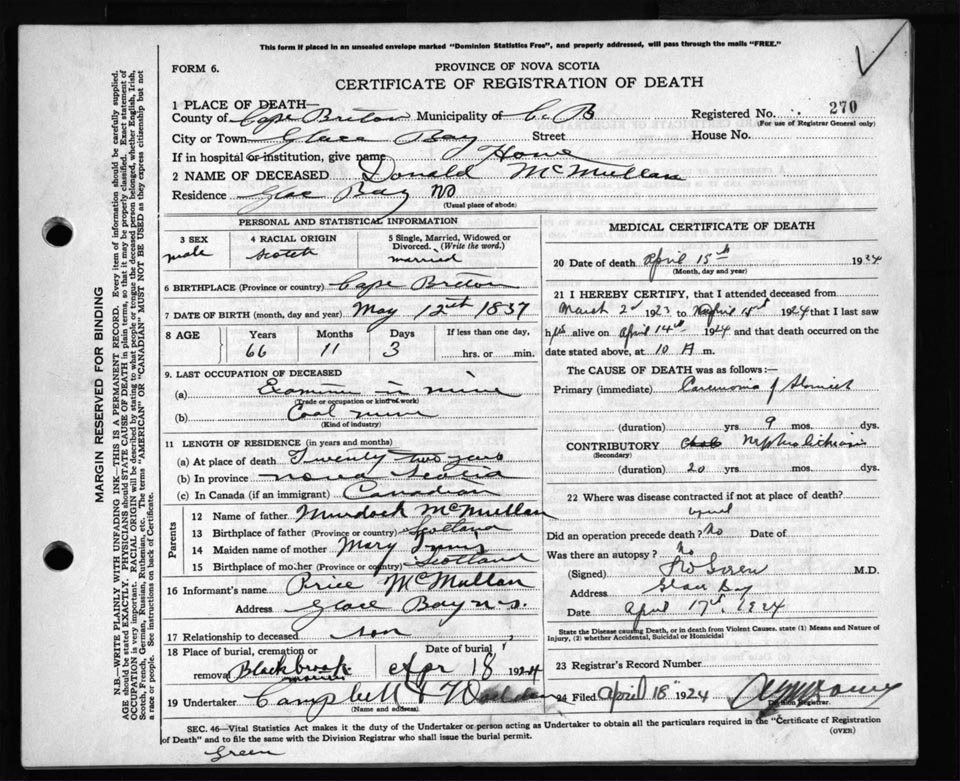 This form if placed in an unsealed envelope marked "Dominion Statistics Free", and properly addressed, will pass through the mails "FREE."
FORM 6.
PROVINCE OF NOVA SCOTIA
CERTIFICATE OF REGISTRATION OF DEATH
1 PLACE OF DEATH—
County of Cape Breton Municipality of C. B Registered No. 270
(For use of Registrar General only)
City or Town Glace Bay Street House No.
If in hospital or institution, give name Home
2 NAME OF DECEASED Donald McMullan
Residence Glac Bay NS
(Usual place of abode)
PERSONAL AND STATISTICAL INFORMATION
3 SEX male
4 RACIAL ORIGIN Scotch
5 Single, Married, Widowed or Divorced. (Write the word.) married
6 BIRTHPLACE (Province or country) Cape Breton
7 DATE OF BIRTH (month, day and year) May 12th 1857
8 AGE Years Months Days If less than one day,
66 11 3 hrs. or min.
9. LAST OCCUPATION OF DECEASED
(a) Examiner in mine
(Trade or occupation or kind of work)
(b) Coal mine
(Kind of industry)
11 LENGTH OF RESIDENCE (in years and months)
(a) At place of death Twenty two years
(b) In province nova Scotia
(c) In Canada (if an immigrant) Canadian
Parents
12 Name of father Murdock McMullan
13 Birthplace of father (Province or country) Scotland
14 Maiden name of mother Mary
15 Birthplace of mother (Province or country) Scotland
16 Informant's name Price McMullan
Address Glace Bay n.s.
17 Relationship to deceased son
18 Place of burial, cremation or removal Blackbrook Date of burial Apr 18 1924
19 Undertaker Campbell &
(Name and address)
MEDICAL CERTIFICATE OF DEATH
20 Date of death April 15th 1924
(Month, day and year)
21 I HEREBY CERTIFY, that I attended deceased from
March 2d 1923 to April 15th 1924 that I last saw
h alive on April 14th 1924 and that death occurred on the
date stated above, at 10 A m.
The CAUSE OF DEATH was as follows:—
Primary (immediate) Carcinoma of Stomach
(duration) yrs 9 mos. dys.
CONTRIBUTORY Nephrolithiasis
(Secondary)
(duration) 20 yrs mos. dys.
22 Where was disease contracted if not at place of death?
Did an operation precede death? No Date of
Was there an autopsy? No
(Signed) M.D.
Address Glace Bay
Date April 17th 1924
State the Disease causing Death, or in death from Violent Causes, state (1) Means and Nature of Injury, (2) whether Accidental, Suicidal or Homicidal
23 Registrar's Record Number
24 Filed April 18" 1924
Division Registrar.
SEC. 46—Vital Statistics Act makes it the duty of the Undertaker or person acting as Undertaker to obtain all the particulars required in the "Certificate of Registration
of Death" and to file the same with the Division Registrar who shall issue the burial permit.
(OVER)
Green
MARGIN RESERVED FOR BINDING
N.B.—WRITE PLAINLY WITH UNFADING INK—THIS IS A PERMANENT RECORD. Every item of information should be carefully supplied.
AGE should be stated EXACTLY. PHYSICIANS should STATE CAUSE OF DEATH in plain terms, so that it may be properly classified. Exact statement of
OCCUPATION is very important. RACIAL ORIGIN will be described by stating to what people or tongue the deceased person belonged, whether English, Irish,
Scotch, French, German, Russian, Ruthenian, etc. The terms "AMERICAN" OR "CANADIAN" MUST NOT BE USED as they express citizenship but not
a race or people. See instructions on back of Certificate.